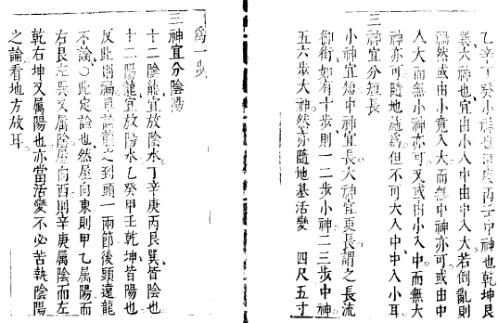 乙辛丁癸小神甲庚丙壬中神也乾坤艮
巽大神也宜由小入中由中入大若倒亂則
由小竟入大而無中神亦可或由中
入大而無小神亦可又或由小入中而無大
神亦可隨地施爲但不可大入中中入小耳
三神宜分短長
小神宜短中神宜長大神宜更長謂之長流
御街如有十步則一二步小神二三步中神
五六步大神然亦隨地基活變 四尺五寸
爲一步
三神宜分陰陽
十二陰龍宜放陰水丁辛庚丙艮巽皆陰也
十二陽龍宜放陽水乙癸甲壬乾坤皆陽也
反此則漏局論龍之到頭一兩節後頭遠龍
不論〇此定論也然屋向東則甲乙屬陽而
右艮左巽又屬陰屋向西則辛庚屬陰而左
乾右坤又屬陽也亦當活變不必苦執陰陽
之論看地方放耳